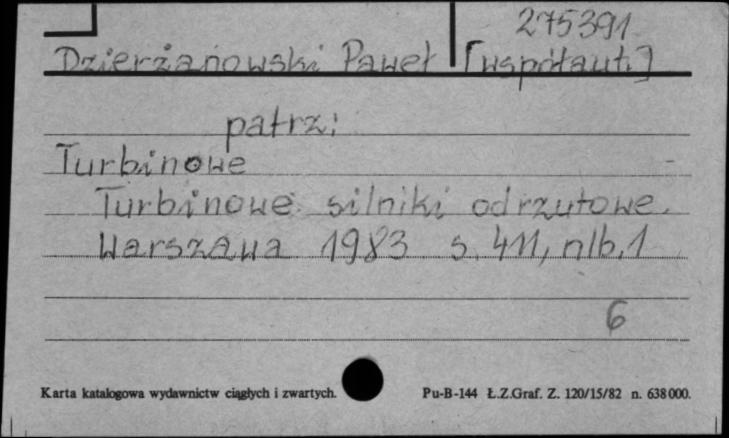 275391
Dzierżanowski Paweł [współaut.]
patrz:
Turbinowe
Turbinowe silniki odrzutowe.
Warszawa 1983 s. 411, nlb. 1
6
Karta katalogowa wydawnictw ciągłych i zwartych. Pu-B-144 Ł.Z.Graf. Z. 120/15/82 n. 638000.